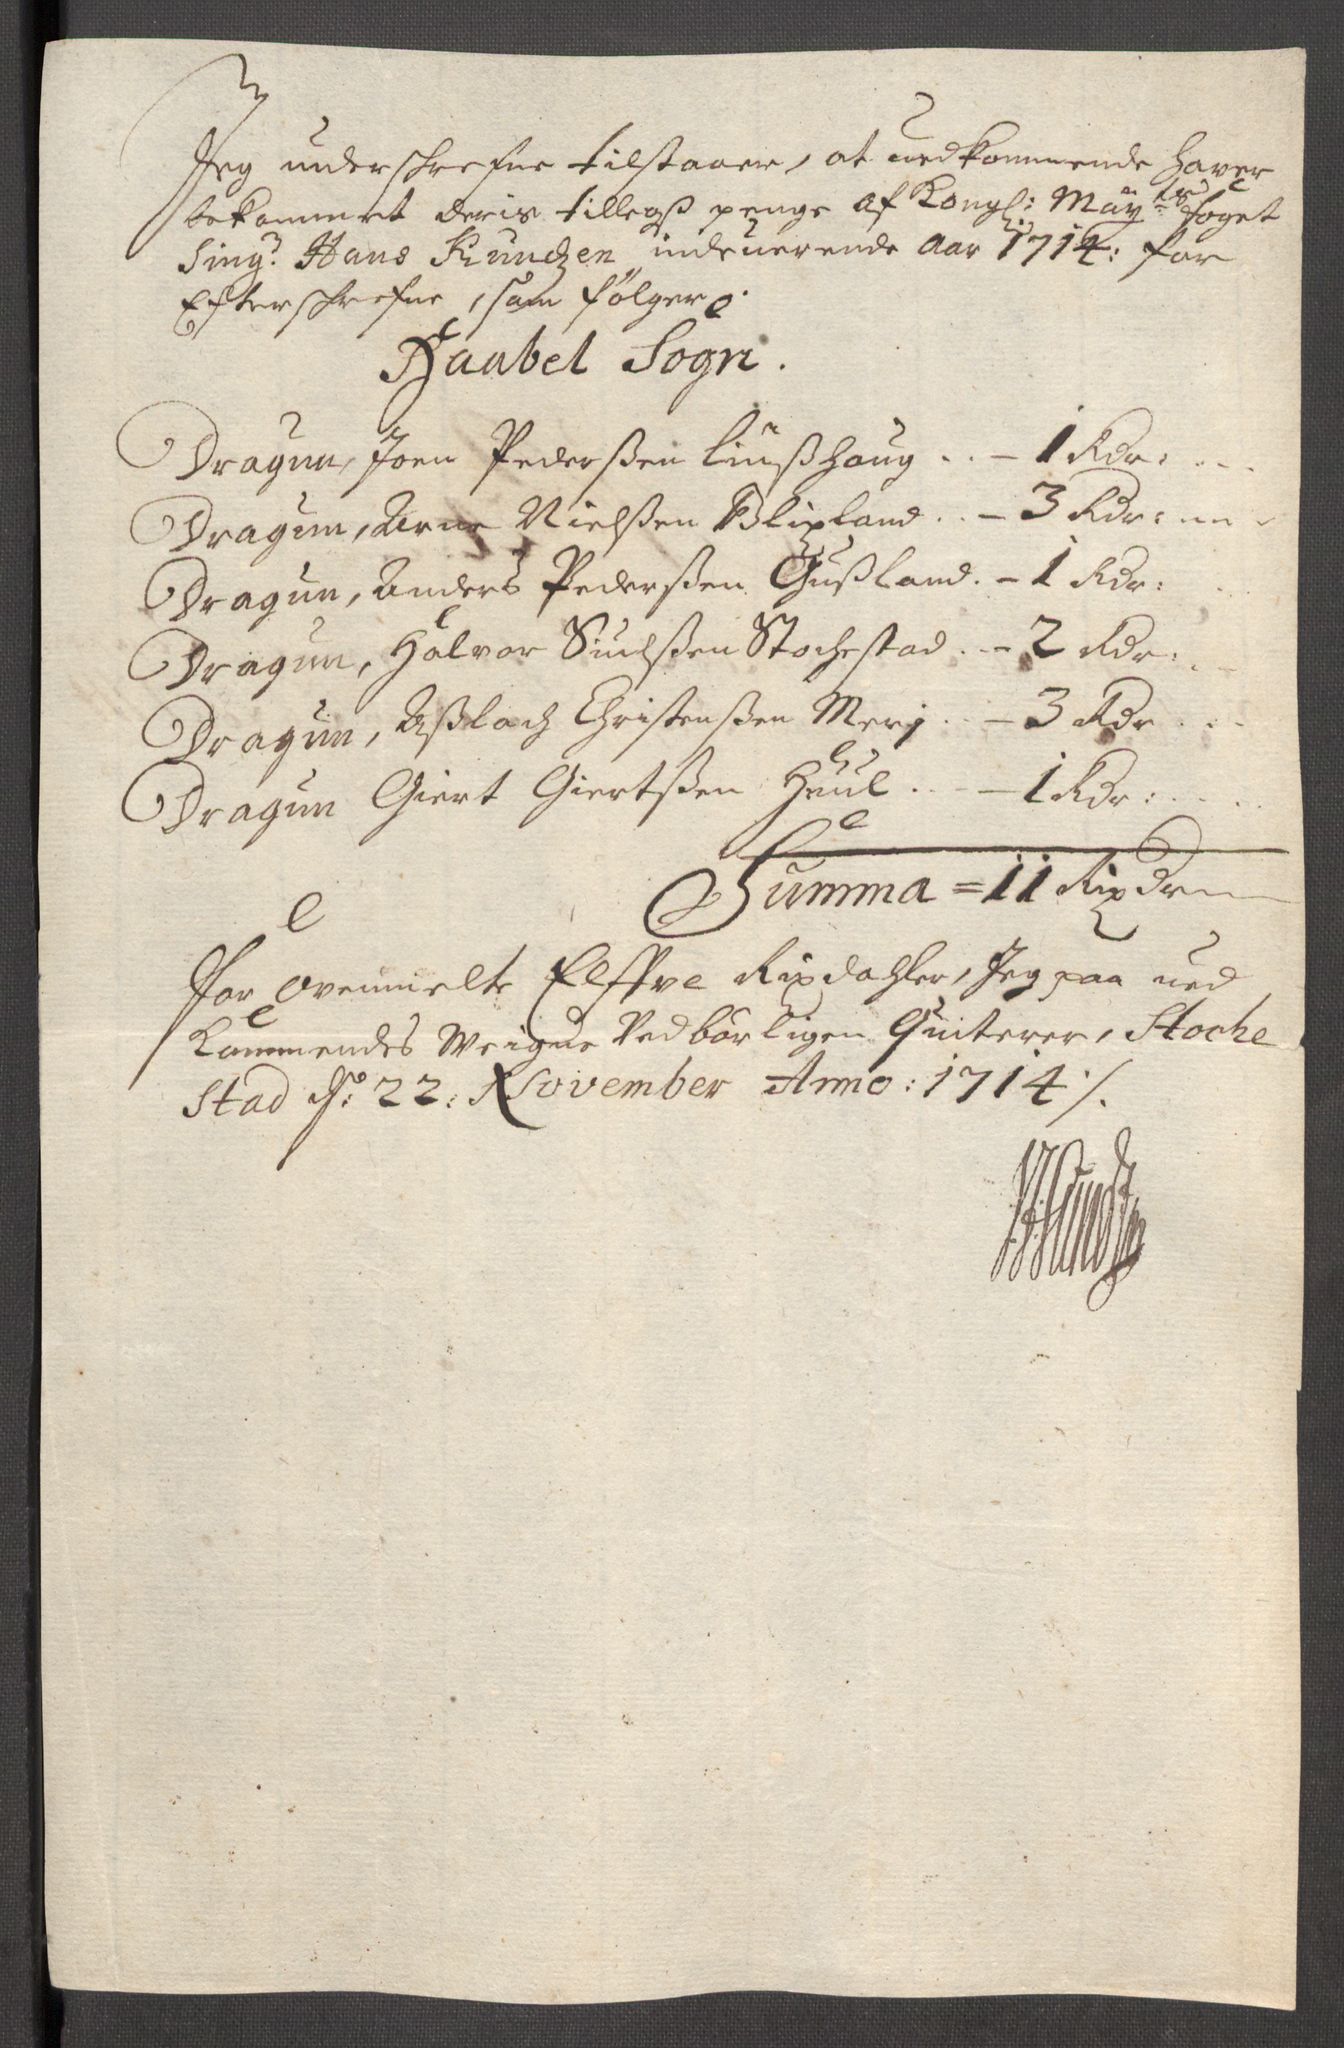 Jeg underschrefne tilstaaer, at uedkommende haver
bekommet deris tillegß penge af Kongl: May:ts foget
Sing:r Hans Kundzen indeuerende Aar 1714: for
Efterschrefne, som følger
Haabel Sogn.
Dragun, Joen Pederßen Liußhoug .. – 1 Rdr: ...
Dragun, Arne Nielßen Blixland .. – 3 Rdr:
Dragun, Anders Pederßen Gußland . – 1 Rdr:
Dragun, Halvor Siuelßen Stochestad .. – 2 Rdr:
Dragun, Aßlach Christenßen Merj .. – 3 Rdr
Dragun Giert Giertßen Huul ... – 1 Rdr:
Summa = 11 Rixdr
For Ovenmelte Elffve Rixdahler, Jeg paa ued
Kommendes Weigne Vedbørligen Quiterer, Stoche
Stad d: 22: November Anno: 1714 /.